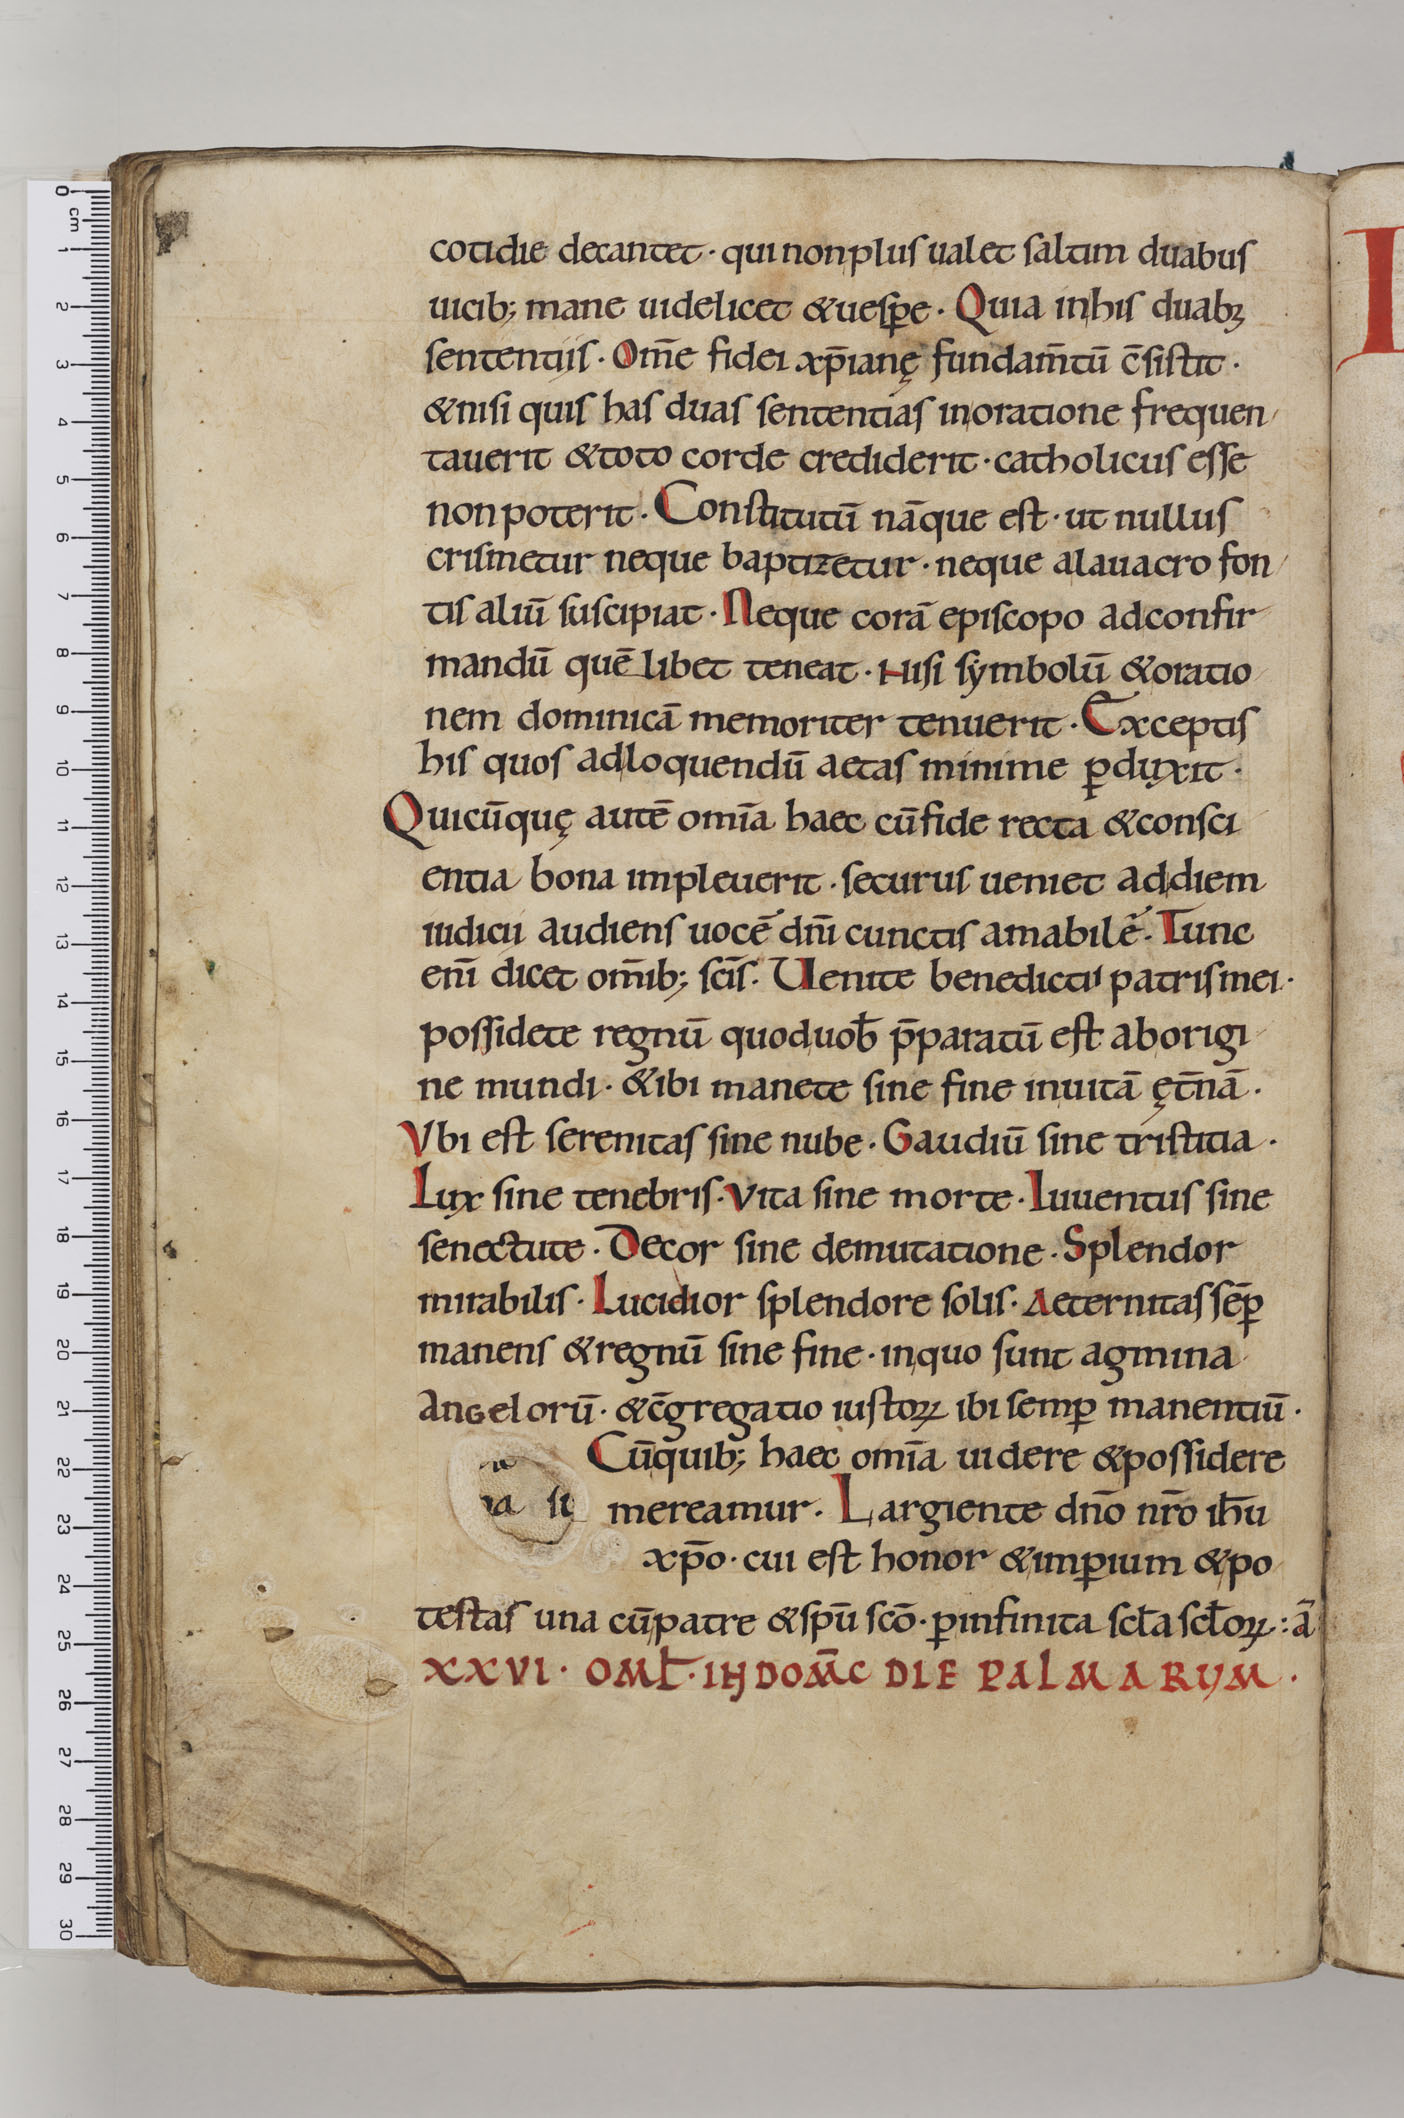 cotidie decantet · qui non plus ualet saltim duabus
uicib; mane uidelicet & uesꝑe · Quia in his duabꝫ
sententiis · Om̄e fidei xp̄ianę fundam̄tū c̄sistit ·
& nisi quis has duas sententias in oratione frequen
tauerit & toto corde crediderit · catholicus esse
non poterit · Constitutū nāque est · ut nullus
crismetur neque baptizetur · neque a lauacro fon
tis aliū suscipiat · Neque corā episcopo ad confir
mandū quē libet teneat · Nisi sẏmbolū & oratio
nem dominicā memoriter tenuerit · Exceptis
his quos ad loquendū aetas minime ꝑduxit ·
Quicūquę autē om̄ia haec cū fide recta & consci
entia bona impleuerit · securus ueniet ad diem
iudicii audiens uocē dn̄i cunctis amabilē · Tunc
eni̅ dicet om̄ib; sc̄is · Uenite benedicti patris mei ·
possidete regnū quod uob̄ p̄paratū est ab origi
ne mundi · & ibi manete sine fine in uitā ęt̄nā ·
Vbi est serenitas sine nube · Gaudiū sine tristitia ·
Lux sine tenebris · Vita sine morte · Iuuentus sine
senectute · Decor sine demutatione · Splendor
mirabilis · Lucidior splendore solis · Aeternitas sēꝑ
manens & regnū sine fine · in quo sunt agmina
angelorū · & c̄gregatio iustoꝝ ibi semꝑ manentiū ·
Cū quib; haec om̄ia uidere & possidere
mereamur · Largiente dn̄o nr̄o ih̄u
xp̄o · cui est honor & imꝑium & po
testas una cū patre & sp̄u scō · ꝑ infinita scl̄a scl̄oꝝ : ā
XXVI · OML̄ · IN DOM̄C DIE PALMARUM ·
0 cm
1
2
3
4
5
6
7
8
9
10
11
12
13
14
15
16
17
18
19
20
21
22
23
24
25
26
27
28
29
30